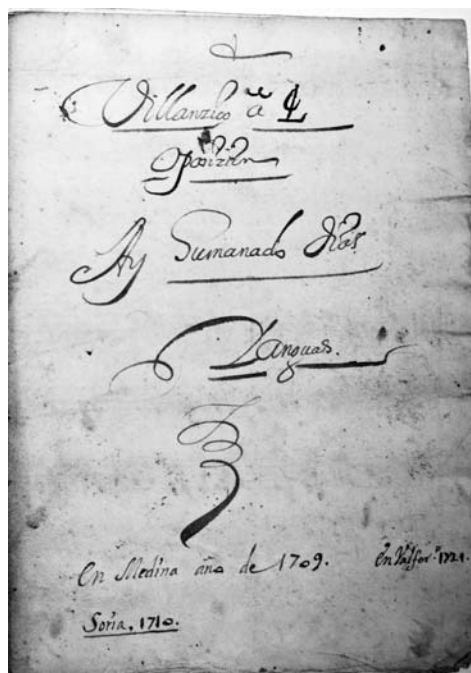 Villanzico a 4
Oposizion
Ay humanado Dios
Yanguas.
En Medina año de 1709. En Valfor.ᵈ 1721.
Soria, 1710.